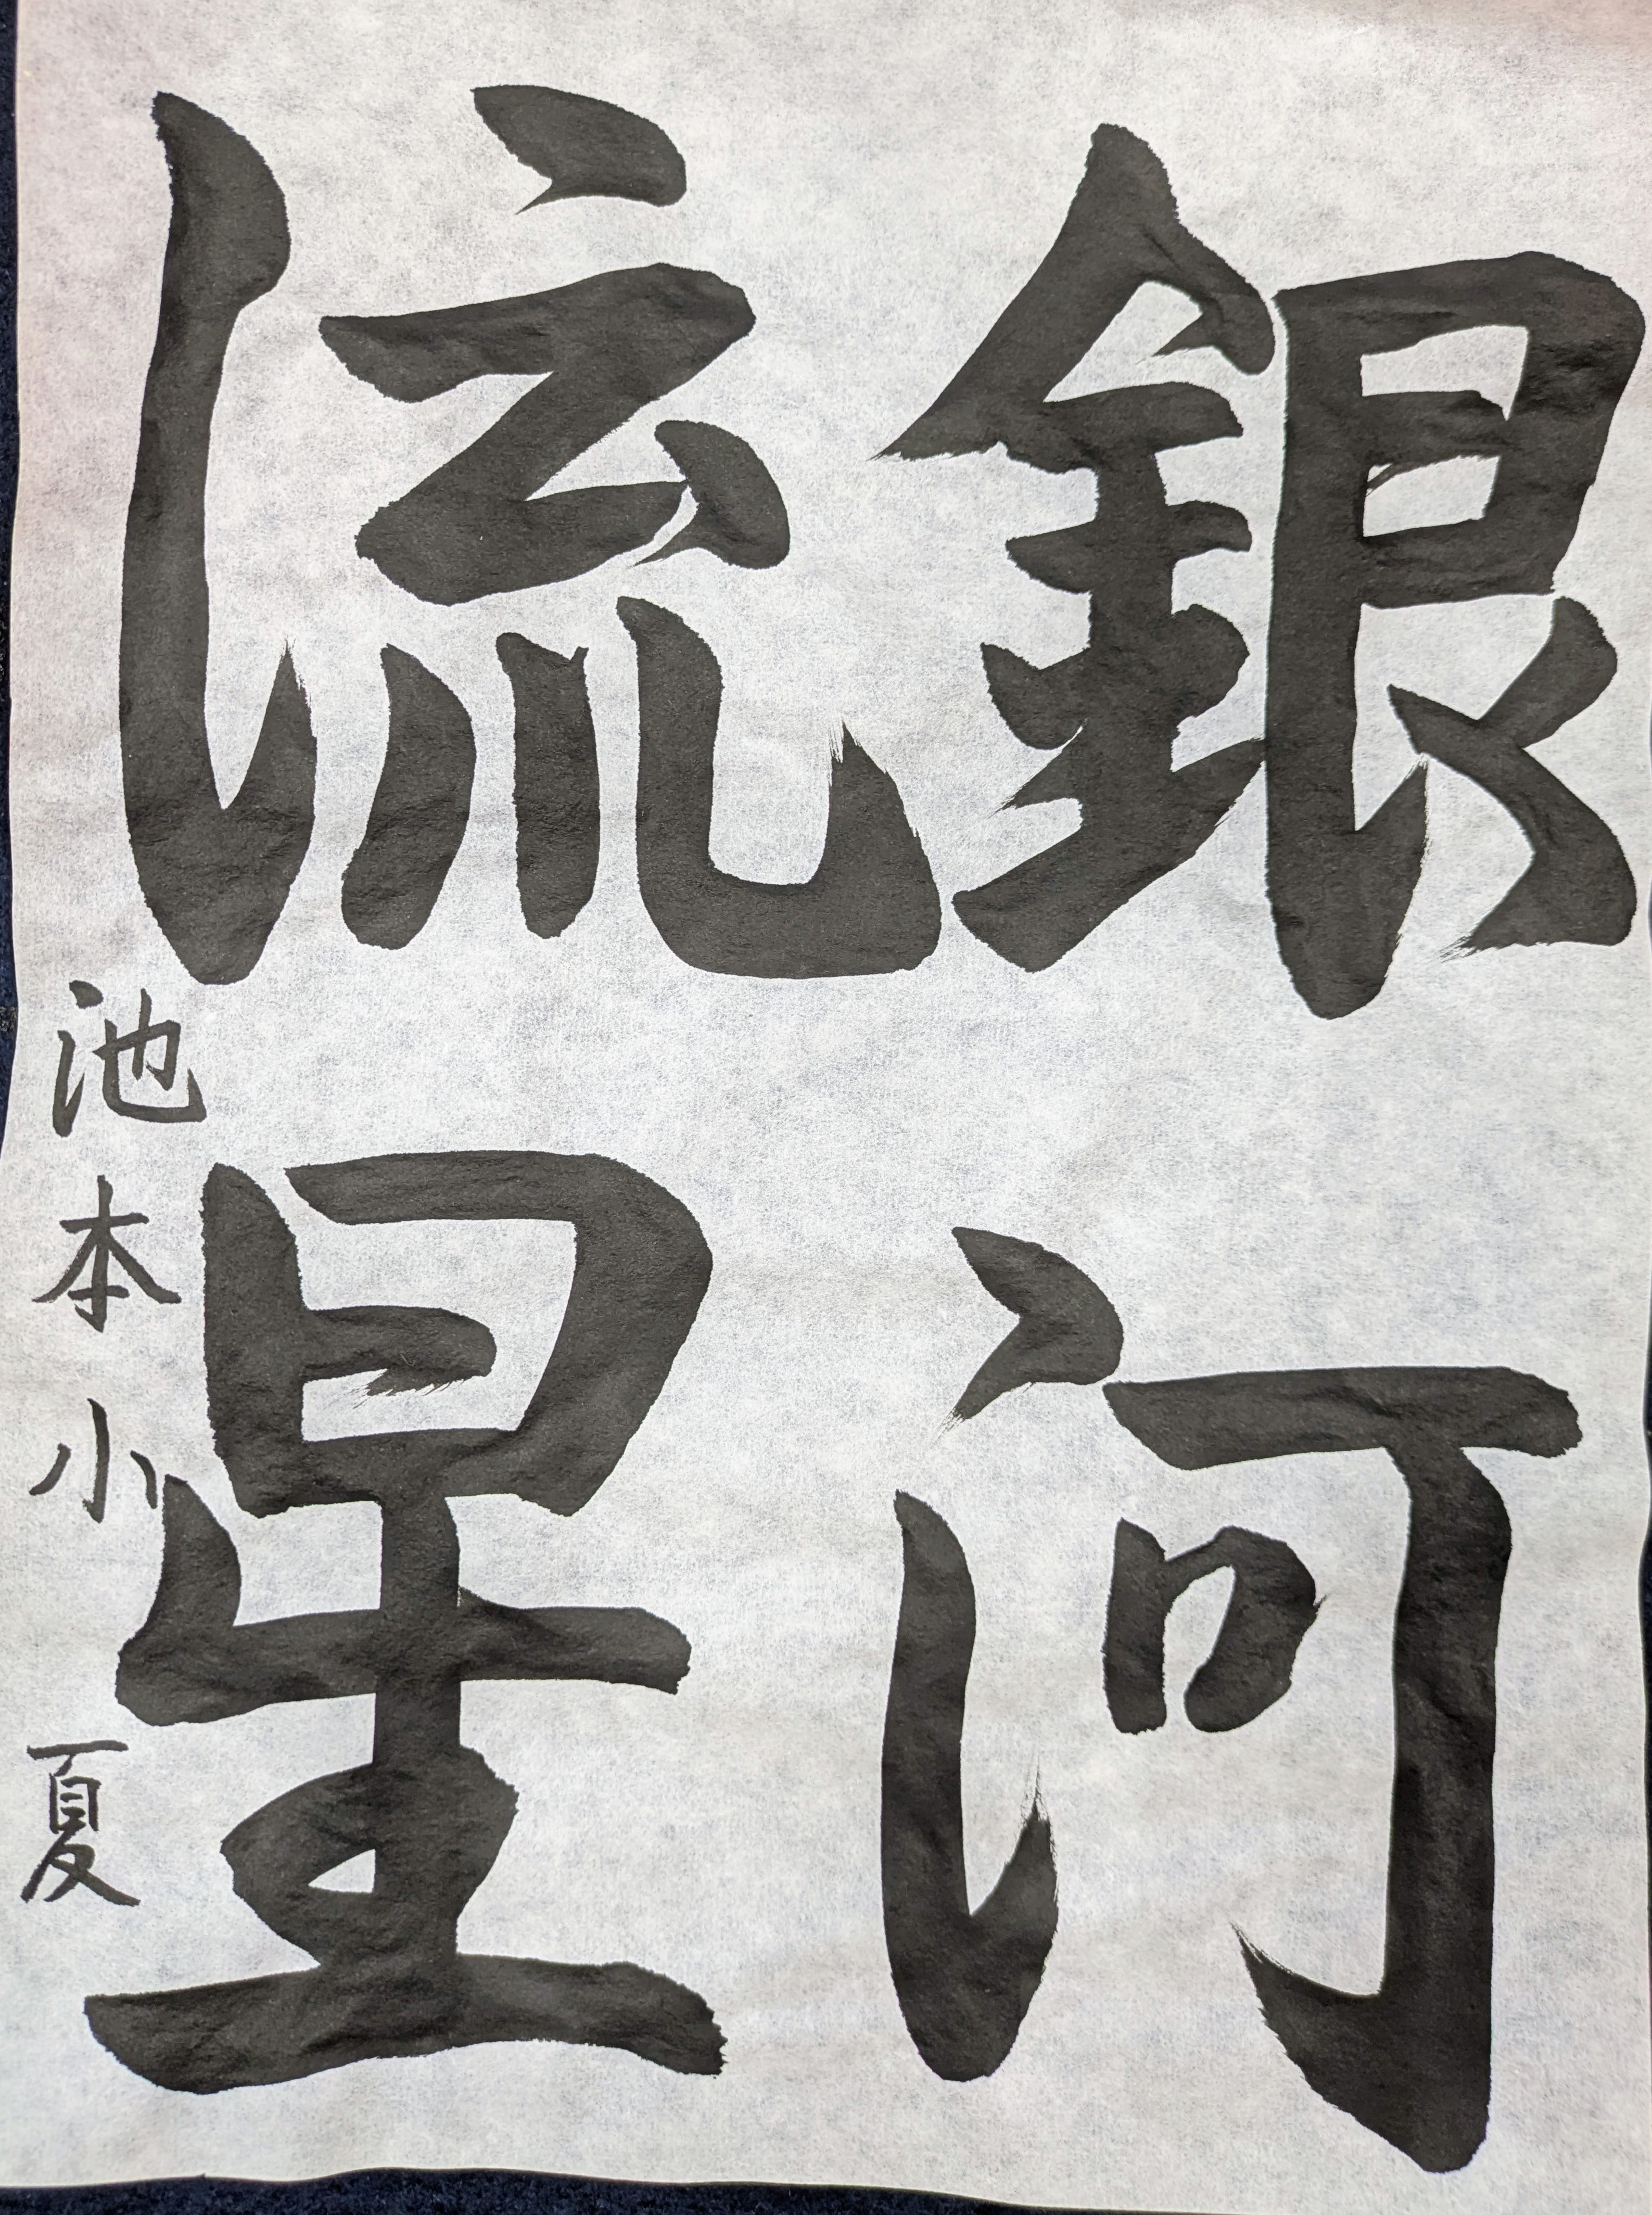 銀河
流星
池本小夏